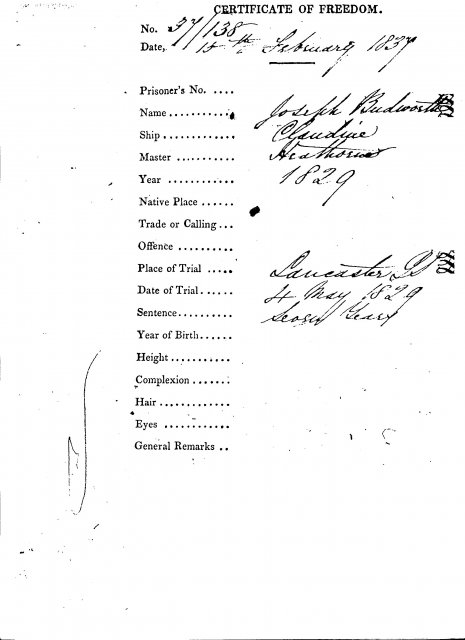 CERTIFICATE OF FREEDOM.
No. 37/138
Date, 15th February 1837
Prisoner's No. ....
Name ........... Joseph Budworth
Ship ............. Claudine
Master ........... Heathorn
Year ............ 1829
Native Place ......
Trade or Calling ...
Offence ..........
Place of Trial ..... Lancaster
Date of Trial ...... 4 May 1829
Sentence .......... Seven Years
Year of Birth ......
Height ...........
Complexion .......
Hair .............
Eyes ............
General Remarks ..